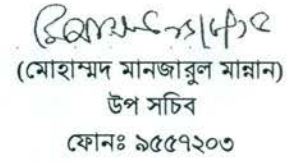 (মোহাম্মদ মানজারুল মান্নান)
উপ সচিব
ফোনঃ ৯৫৫৭২০৩